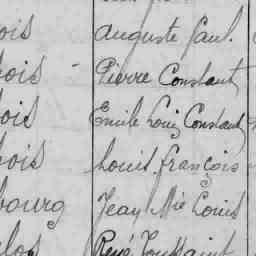 ois Auguste Paul.
bois Pierre Constant
ois Emile Louis Constant
bois Louis François
bourg Jean Mie Louis
René Toussaint